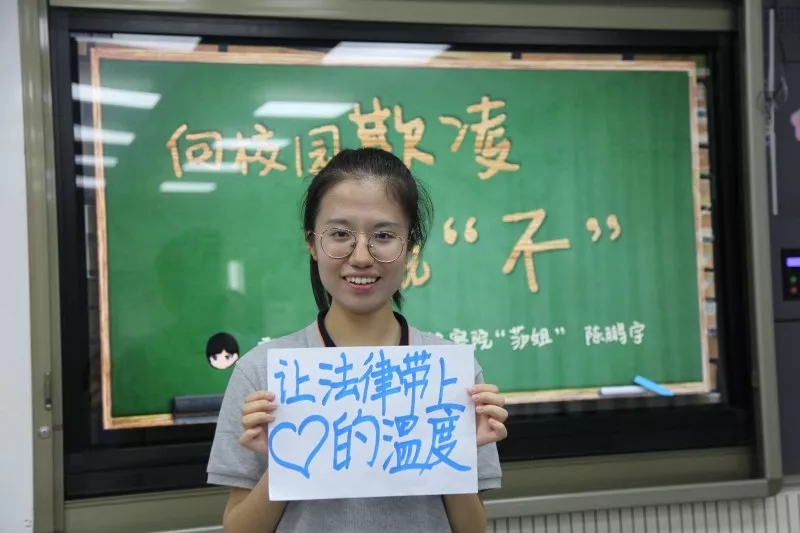 向校园欺凌
说“不”
察院“莎姐” 陈鹏宇
让法律带上
♡的温度